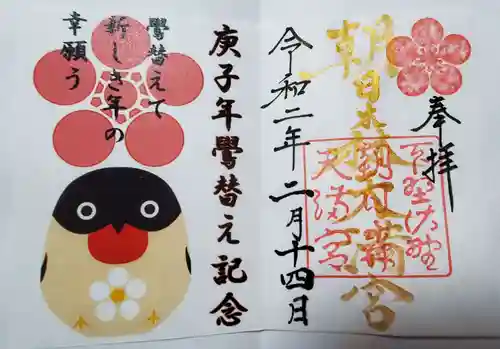 奉拝
朝日森天満宮
下野佐野
天満宮
令和二年二月十四日
庚子年鷽替え記念
鷽替えて
新しき年の
幸願う